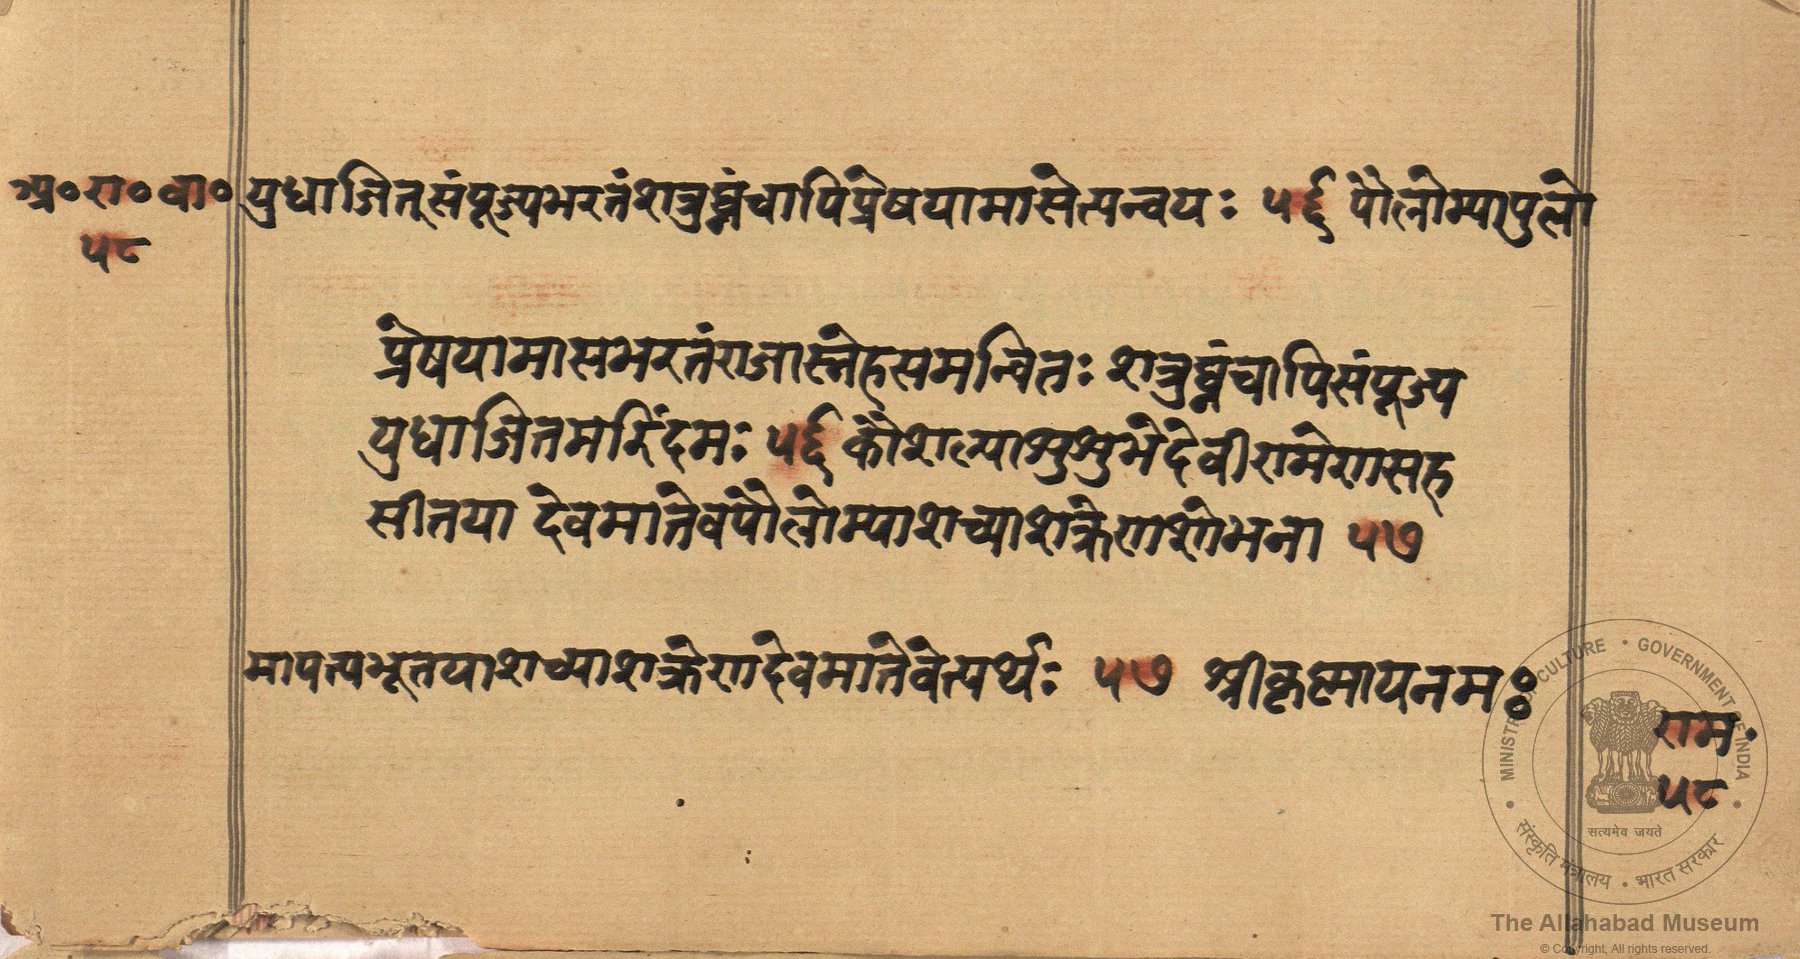 अ॰रा॰बा॰
५८
युधाजित्संपूज्यभरतंशत्रुघ्नंचापिप्रेषयामासेत्यन्वयः ५६ पौलोम्यापुलो
प्रेषयामासभरतंराजास्नेहसमन्वितः शत्रुघ्नंचापिसंपूज्य
युधाजितमरिंदमः ५६ कौशल्याशुशुभेदेवीरामेणसह
सीतया देवमातेवपौलोम्याशच्याशक्रेणशोभना ५७
मापत्यभूतयाशच्याशक्रेणदेवमातेवेत्यर्थः ५७ श्रीकृष्णायनमः
राम
५८
MINISTRY OF CULTURE • GOVERNMENT OF INDIA
सत्यमेव जयते
संस्कृति मंत्रालय • भारत सरकार
The Allahabad Museum
© Copyright, All rights reserved.